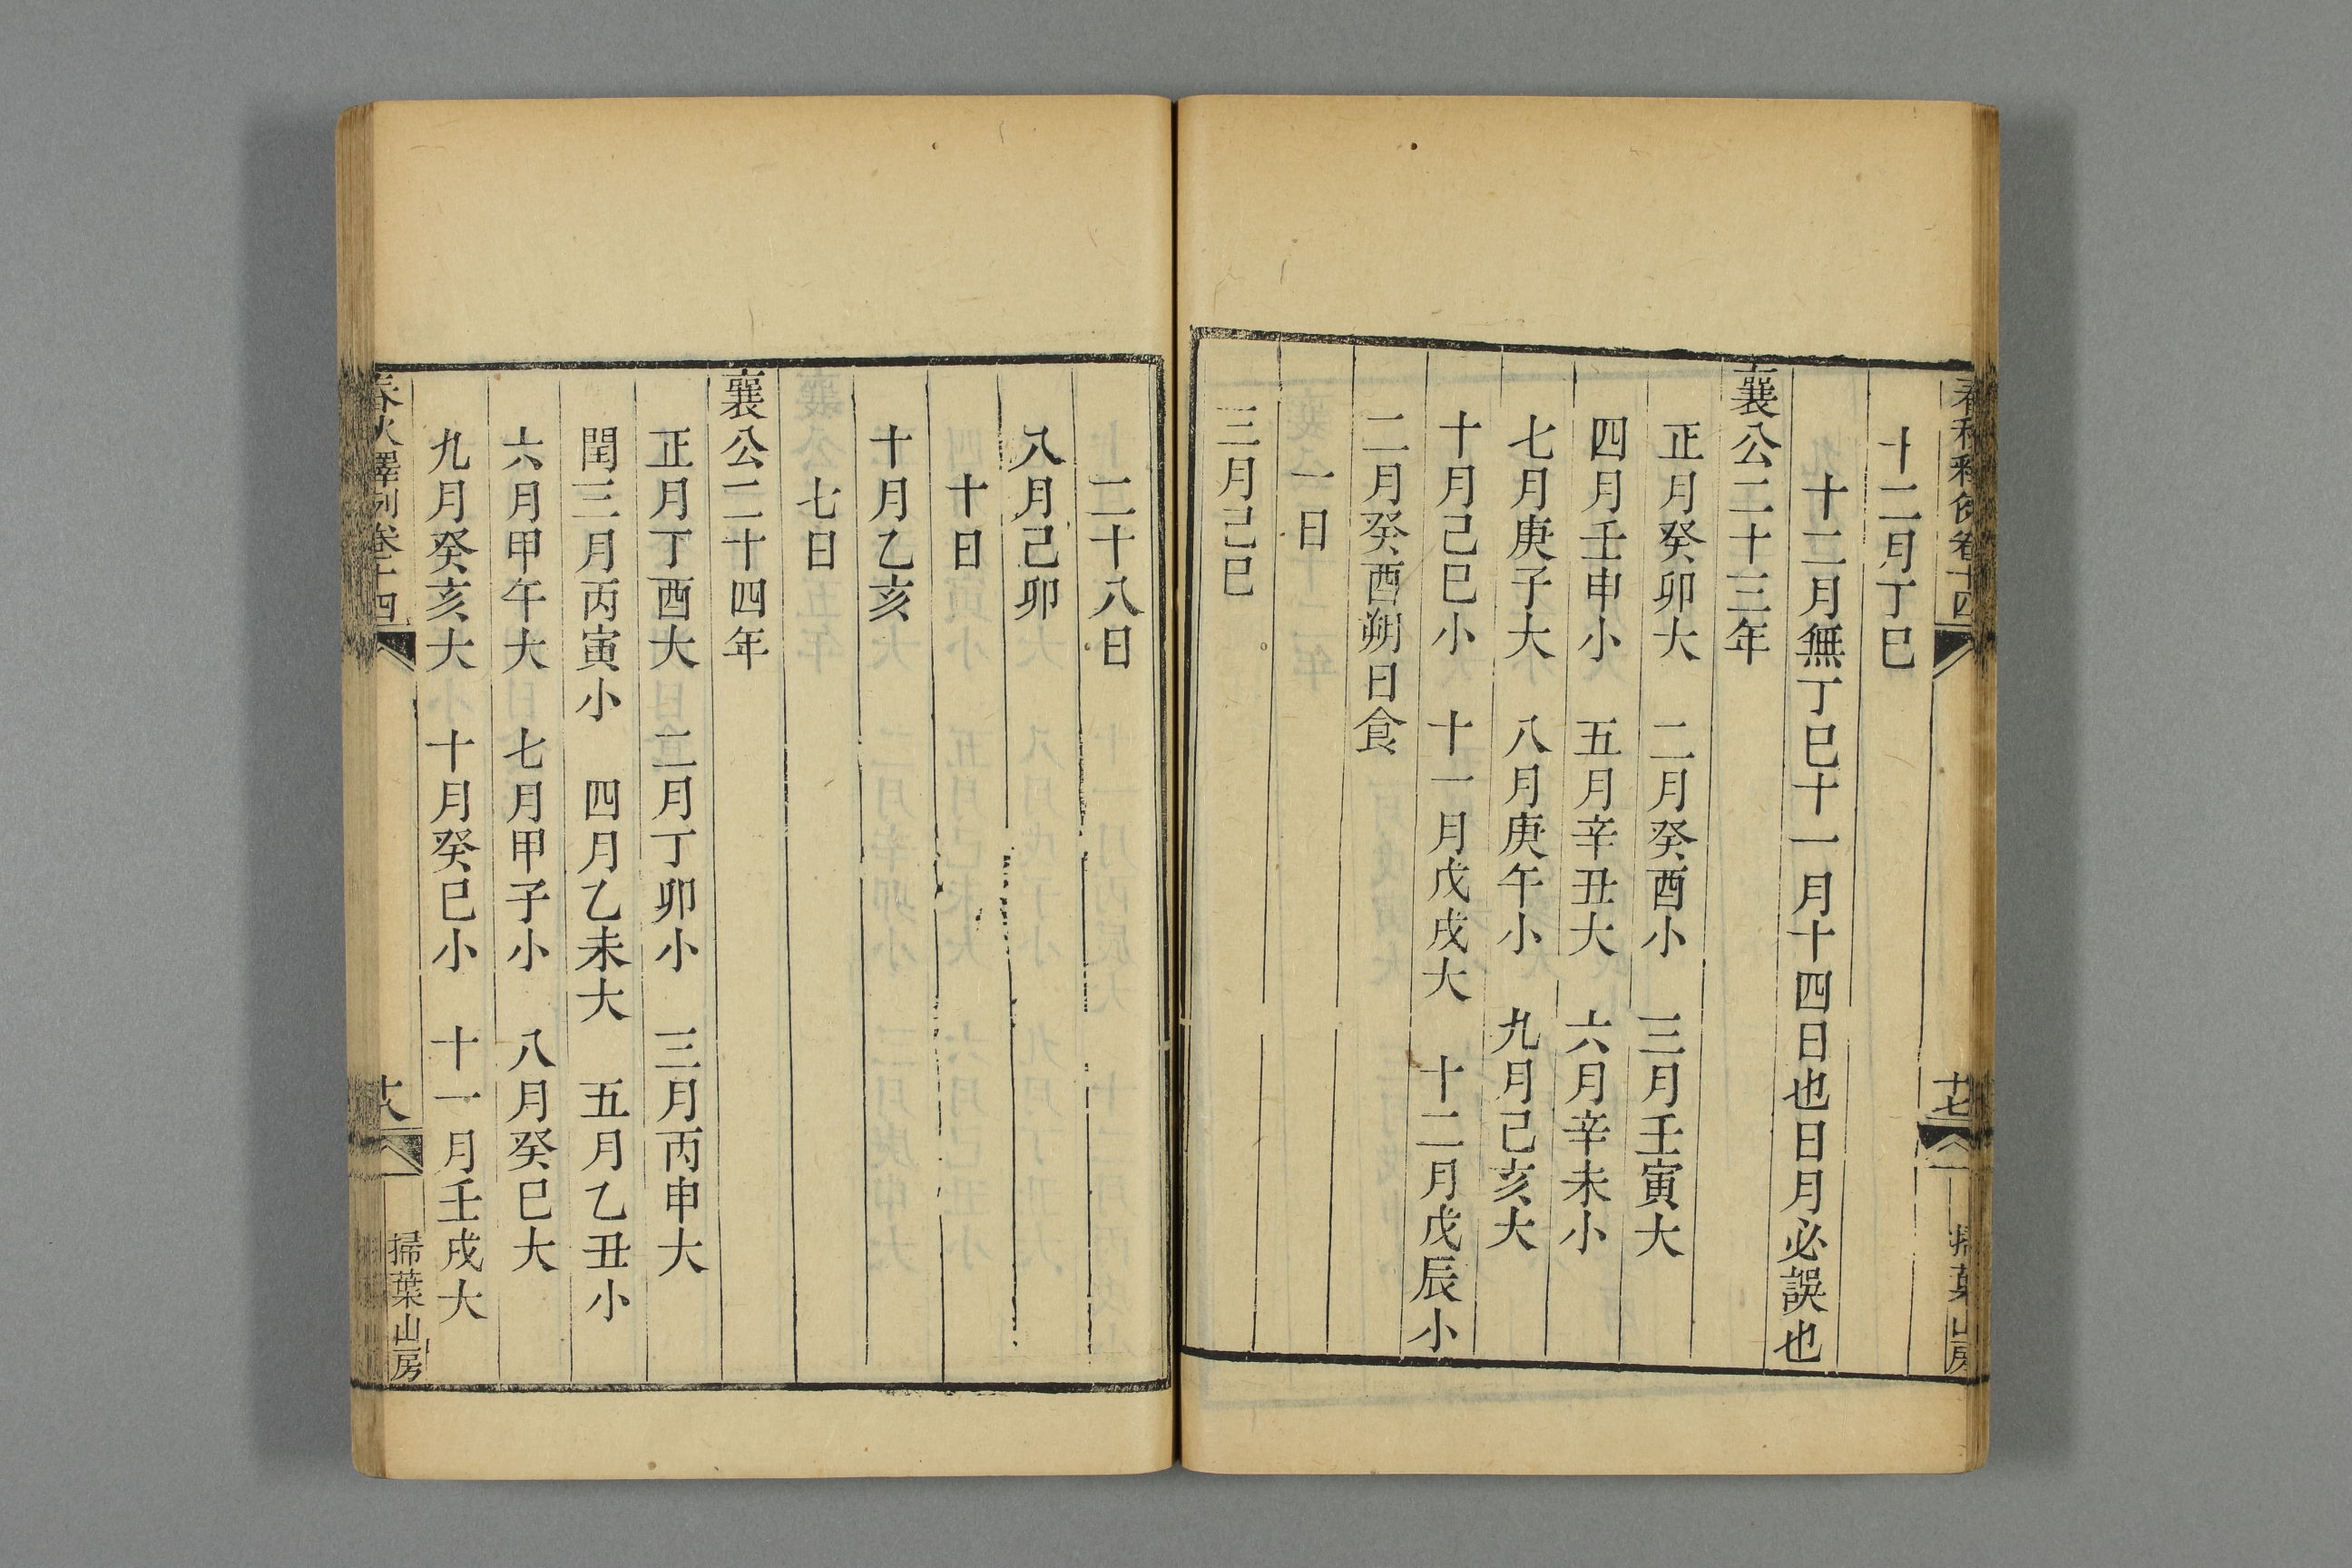 春秋釋例卷十四
十七
掃葉山房
十二月丁巳
十二月無丁巳十一月十四日也日月必誤也
襄公二十三年
正月癸卯大　二月癸酉小　三月壬寅大
四月壬申小　五月辛丑大　六月辛未小
七月庚子大　八月庚午小　九月己亥大
十月己巳小　十一月戊戌大　十二月戊辰小
二月癸酉朔日食
一日
三月己巳
二十八日
八月己卯
十日
十月乙亥
七日
襄公二十四年
正月丁酉大　二月丁卯小　三月丙申大
閏三月丙寅小　四月乙未大　五月乙丑小
六月甲午大　七月甲子小　八月癸巳大
九月癸亥大　十月癸巳小　十一月壬戌大
春秋釋例卷十四
十八
掃葉山房